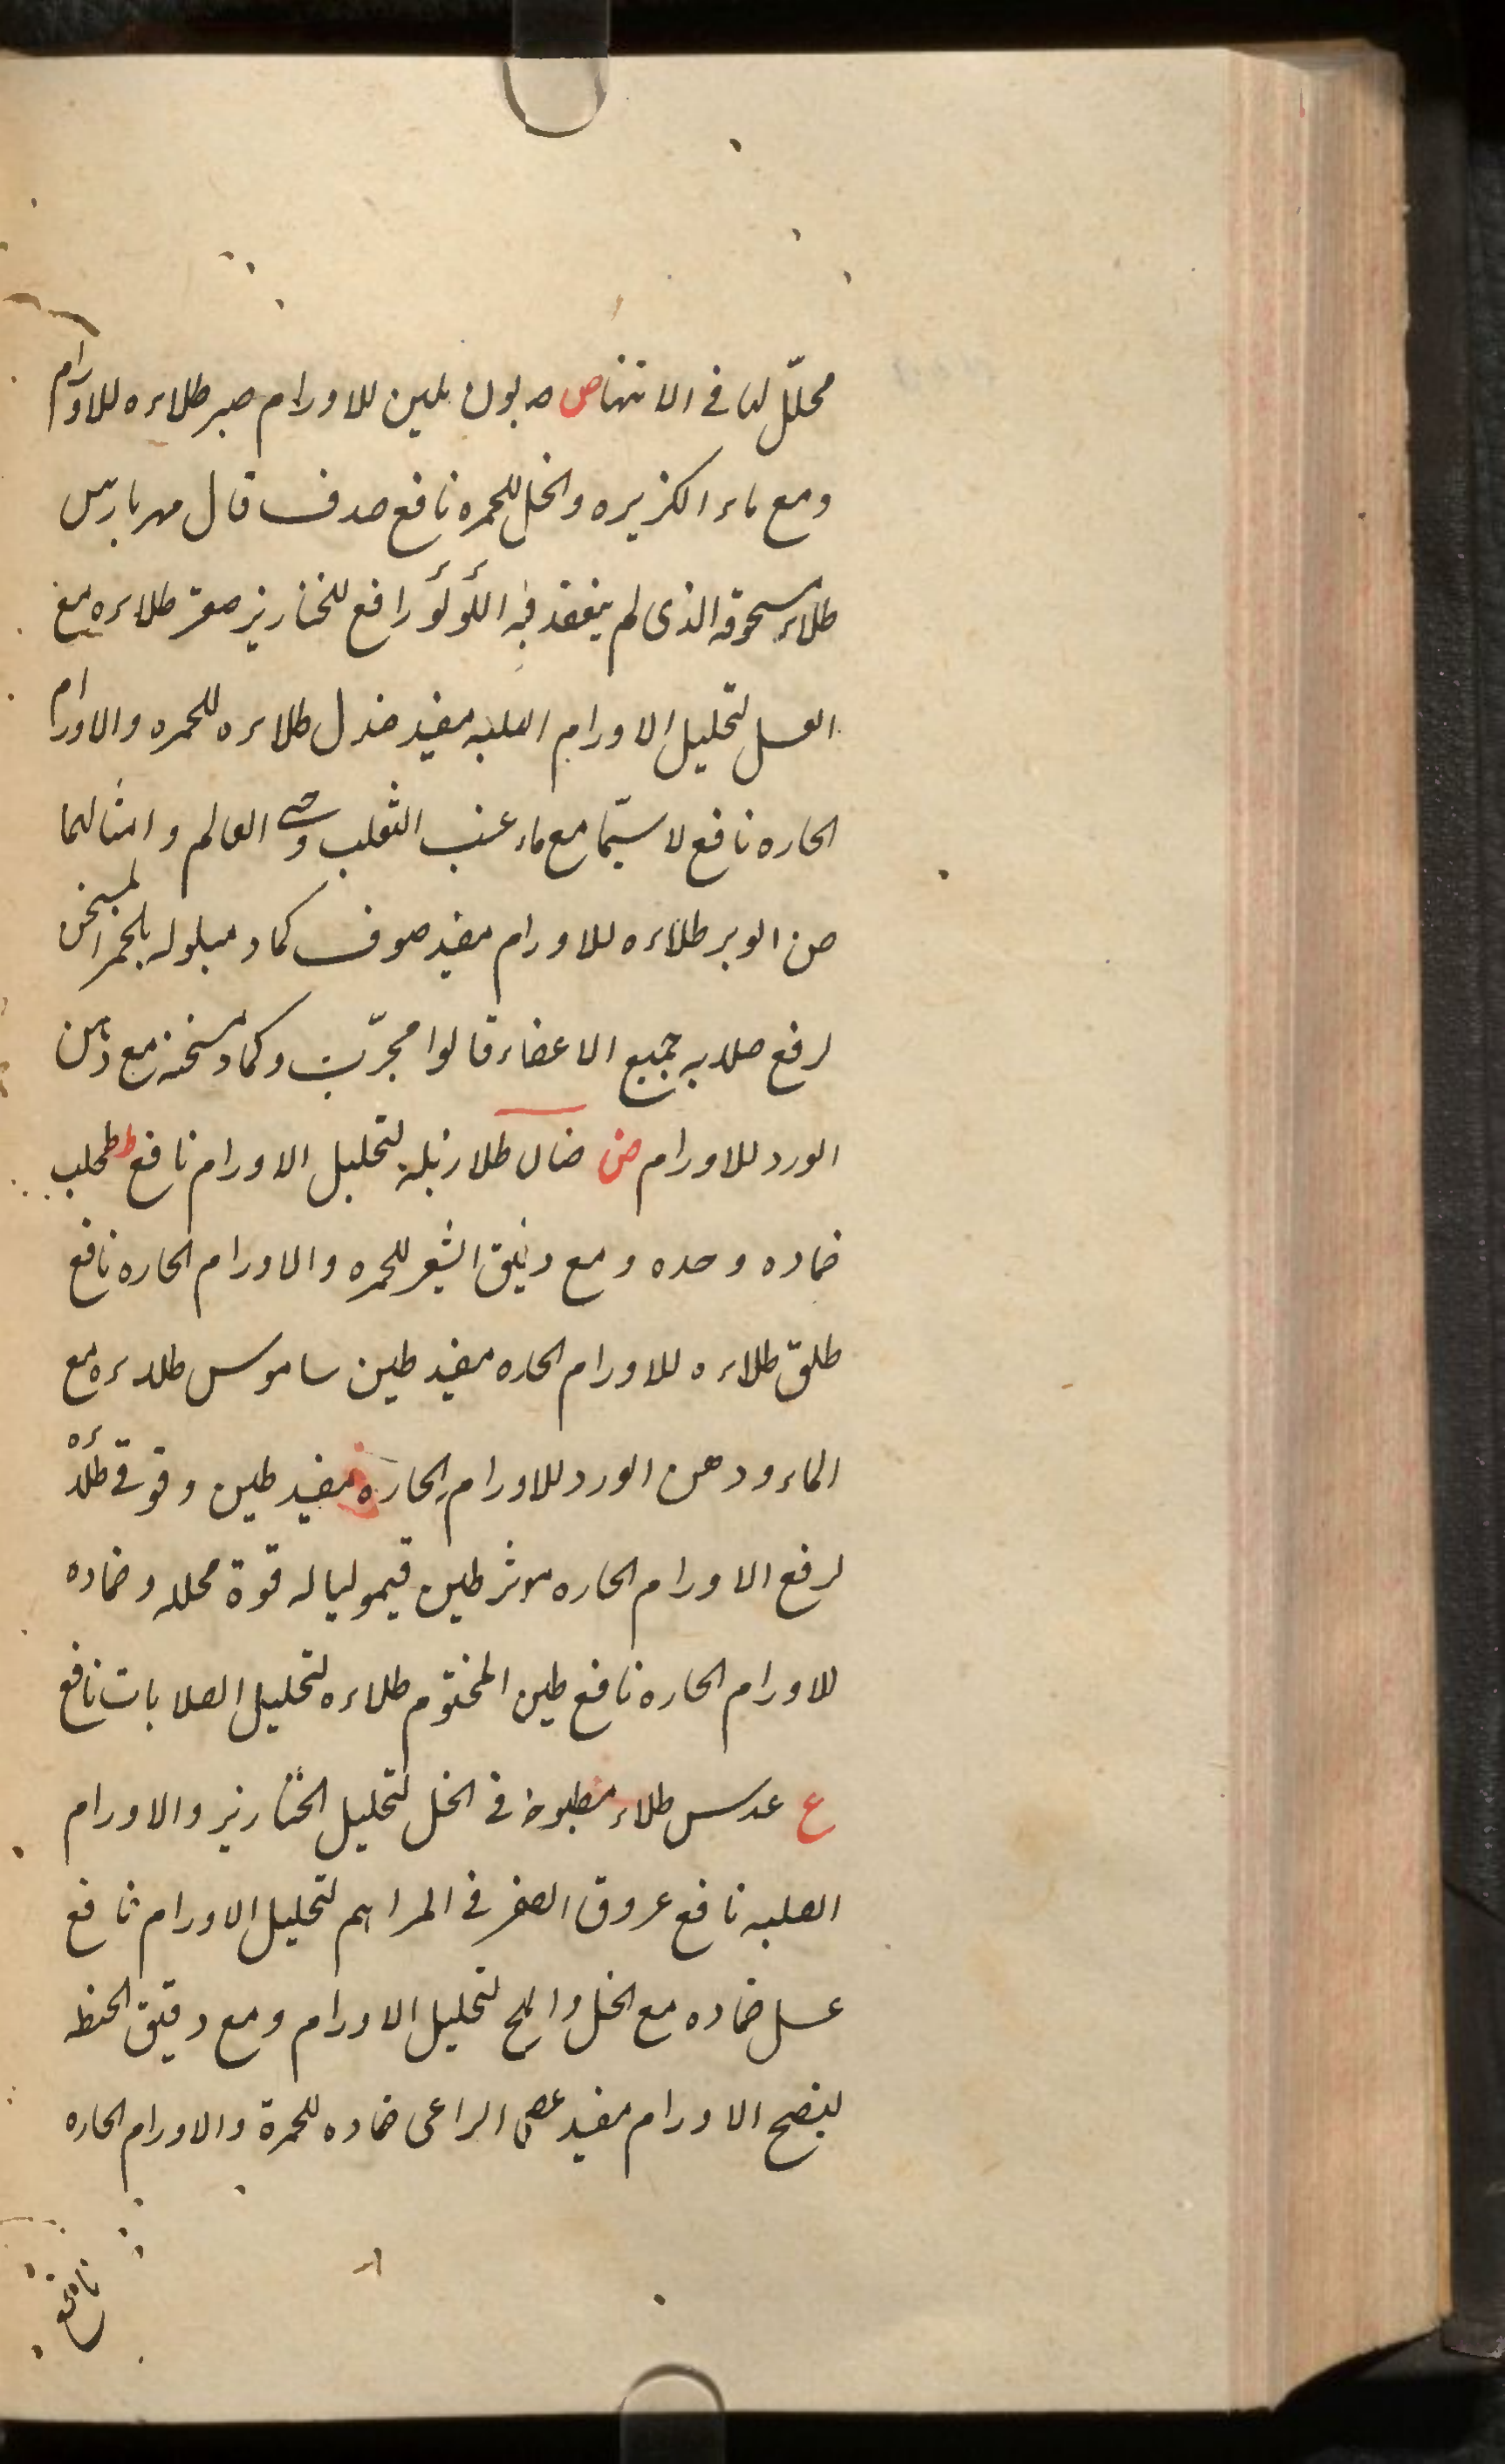 محلّل لها فى الانتها ص صابون ملين للاورام صبر طلاءه للاورام
ومع ماء الكزبره والخل للحمره نافع صدف قال مهربارس
طلاء مسحوقه الذى لم ينعقد فيه اللؤلؤ رافع للخنازير صعتر طلاءه مع
العسل لتحليل الاورام الصلبه مفيد صندل طلاءه للحمره والاورام
الحاره نافع لاسيّما مع ماء عنب الثعلب وحى العالم وامثالهما
صن الوبر طلاءه للاورام مفيد صوف كماد مبلوله بالخمر المسخن
لرفع صلابه جميع الاعضاء قالوا مجرّب وكماد مسخنه مع دهن
الورد للاورام ض ضان طلاء زبله لتحليل الاورام نافع ط طحلب
ضماده وحده ومع دقيق الشعير للحمره والاورام الحاره نافع
طلق طلاءه للاورام الحاره مفيد طين ساموس طلاءه مع
الماء ودهن الورد للاورام الحاره مفيد طين وقوقى طلاءه
لرفع الاورام الحاره موثر طين قيموليا له قوة محلله وضماده
للاورام الحاره نافع طين المختوم طلاءه لتحليل الصلابات نافع
ع عدس طلاء مطبوخه فى الخل لتحليل الخنازير والاورام
الصلبه نافع عروق الصفر فى المراهم لتحليل الاورام نافع
عسل ضماده مع الخل والملح لتحليل الاورام ومع دقيق الحنطه
لينضج الاورام مفيد عصى الراعى ضماده للحمرة والاورام الحاره
نافع